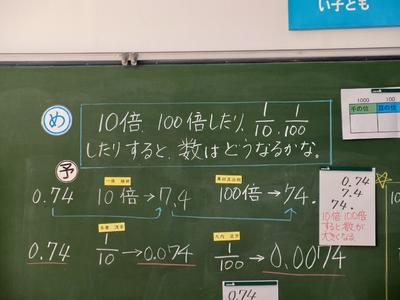 い子ども
め
10倍、100倍したり、1/10、1/100
したりすると、数はどうなるかな。
予
0.74 10倍→7.4 100倍→74.
0.74 1/10→0.074 1/100→0.0074
1000 100
千の位 百の位
0.74
7.4
74.
10倍100倍
すると数が
大きくなる
0.74